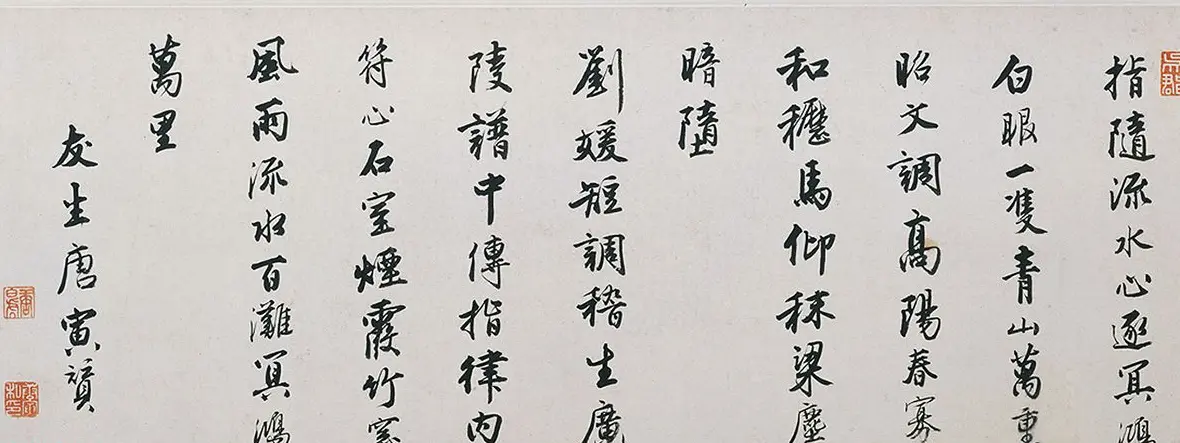 指隨流水心逐冥鴻
白眼一隻青山萬重
昭文調高陽春寡
和穮馬仰秣梁塵
暗墮
劉媛短調稽生廣
陵譜中傳指律內
符心石室煙霞竹窓
風雨流水百灘冥鴻
萬里
友生唐寅贊
吳郡